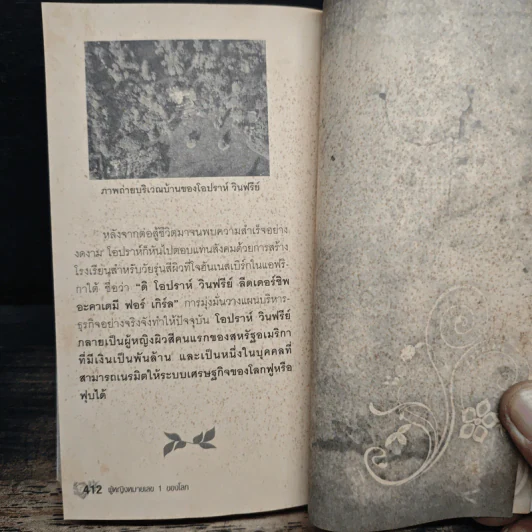 ภาพถ่ายบริเวณบ้านของโอปราห์ วินฟรีย์
หลังจากต่อสู้ชีวิตมาจนพบความสำเร็จอย่าง
งดงาม โอปราห์ก็หันไปตอบแทนสังคมด้วยการสร้าง
โรงเรียนสำหรับวัยรุ่นสีผิวที่โจฮันเนสเบิร์กในแอฟริ-
กาใต้ ชื่อว่า "ดิ โอปราห์ วินฟรีย์ ลีดเดอร์ชิพ
อะคาเดมี ฟอร์ เกิร์ล" การมุ่งมั่นวางแผนบริหาร-
ธุรกิจอย่างจริงจังทำให้ปัจจุบัน โอปราห์ วินฟรีย์
กลายเป็นผู้หญิงผิวสีคนแรกของสหรัฐอเมริกา
ที่มีเงินเป็นพันล้าน และเป็นหนึ่งในบุคคลที่
สามารถเนรมิตให้ระบบเศรษฐกิจของโลกฟูหรือ
ฟุบได้
412 ผู้หญิงหมายเลข 1 ของโลก